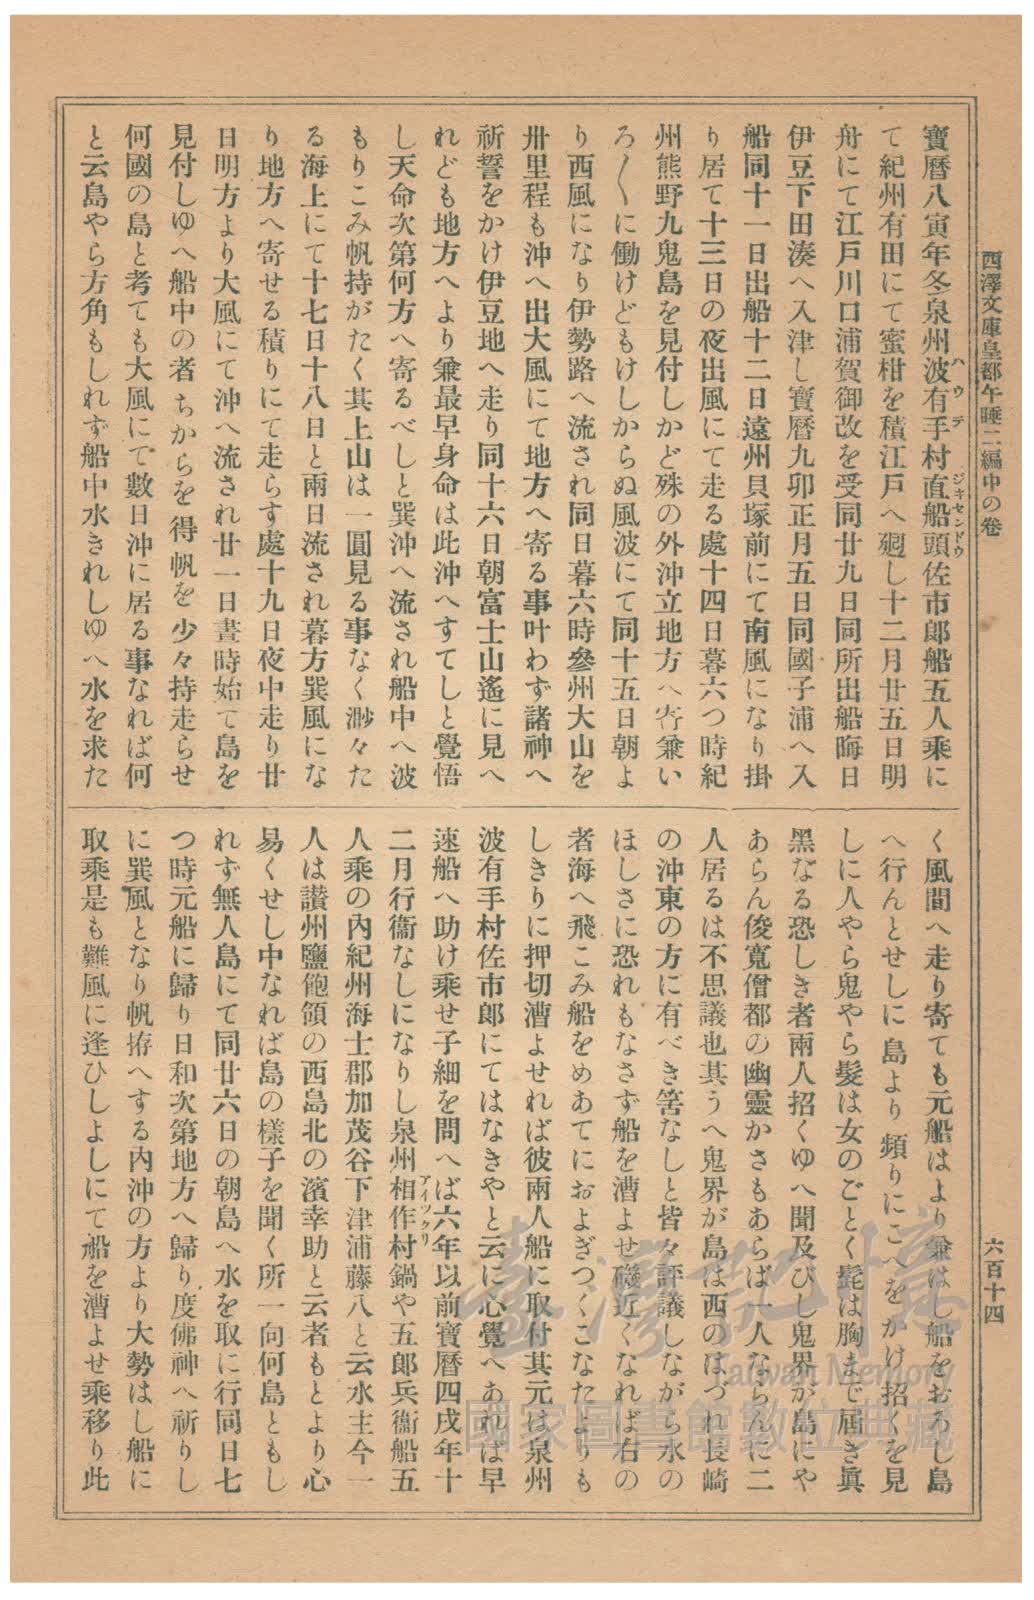 西澤文庫皇都午睡二編中の卷
六百十四
寶曆八寅年冬泉州波有手村直船頭佐市郎船五人乘に
ハウデ
ジキセンドウ
て紀州有田にて蜜柑を積江戸へ廻し十二月廿五日明
舟にて江戸川口浦賀御改を受同廿九日同所出船晦日
伊豆下田湊へ入津し寶曆九卯正月五日同國子浦へ入
船同十一日出船十二日遠州貝塚前にて南風になり掛
り居て十三日の夜出風にて走る處十四日暮六つ時紀
州熊野九鬼島を見付しかど殊の外沖立地方へ寄兼い
ろ〱に働けどもけしからぬ風波にて同十五日朝よ
り西風になり伊勢路へ流され同日暮六時參州大山を
卅里程も沖へ出大風にて地方へ寄る事叶わず諸神へ
祈誓をかけ伊豆地へ走り同十六日朝富士山遙に見へ
れども地方へより兼最早身命は此沖へすてしと覺悟
し天命次第何方へ寄るべしと巽沖へ流され船中へ波
もりこみ帆持がたく其上山は一圓見る事なく渺々た
る海上にて十七日十八日と兩日流され暮方巽風にな
り地方へ寄せる積りにて走らす處十九日夜中走り廿
日明方より大風にて沖へ流され廿一日晝時始て島を
見付しゆへ船中の者ちからを得帆を少々持走らせ
何國の島と考ても大風にて數日沖に居る事なれば何
と云島やら方角もしれず船中水きれしゆへ水を求た
く風間へ走り寄ても元船はより兼はし船をおろし島
へ行んとせしに島より頻りにこへをかけ招くを見
しに人やら鬼やら髮は女のごとく髭は胸まで届き眞
黑なる恐しき者兩人招くゆへ聞及びし鬼界が島にや
あらん俊寬僧都の幽靈かさもあらば一人ならんに二
人居るは不思議也其うへ鬼界が島は西のはづれ長崎
の沖東の方に有べき筈なしと皆々評議しながら水の
ほしさに恐れもなさず船を漕よせ磯近くなれば右の
者海へ飛こみ船をめあてにおよぎつくこなたよりも
しきりに押切漕よせれば彼兩人船に取付其元は泉州
波有手村佐市郎にてはなきやと云に心覺へあれば早
速船へ助け乘せ子細を問へば六年以前寶曆四戌年十
二月行衞なしになりし泉州相作村鍋や五郎兵衞船五
アイツクリ
人乘の內紀州海士郡加茂谷下津浦藤八と云水主今一
人は讃州鹽飽領の西島北の濱幸助と云者もとより心
易くせし中なれば島の樣子を聞く所一向何島ともし
れず無人島にて同廿六日の朝島へ水を取に行同日七
つ時元船に歸り日和次第地方へ歸り度佛神へ祈りし
に巽風となり帆拵へする內沖の方より大勢はし船に
取乘是も難風に逢ひしよしにて船を漕よせ乘移り此
臺灣記憶
Taiwan Memory
國家圖書館數位典藏